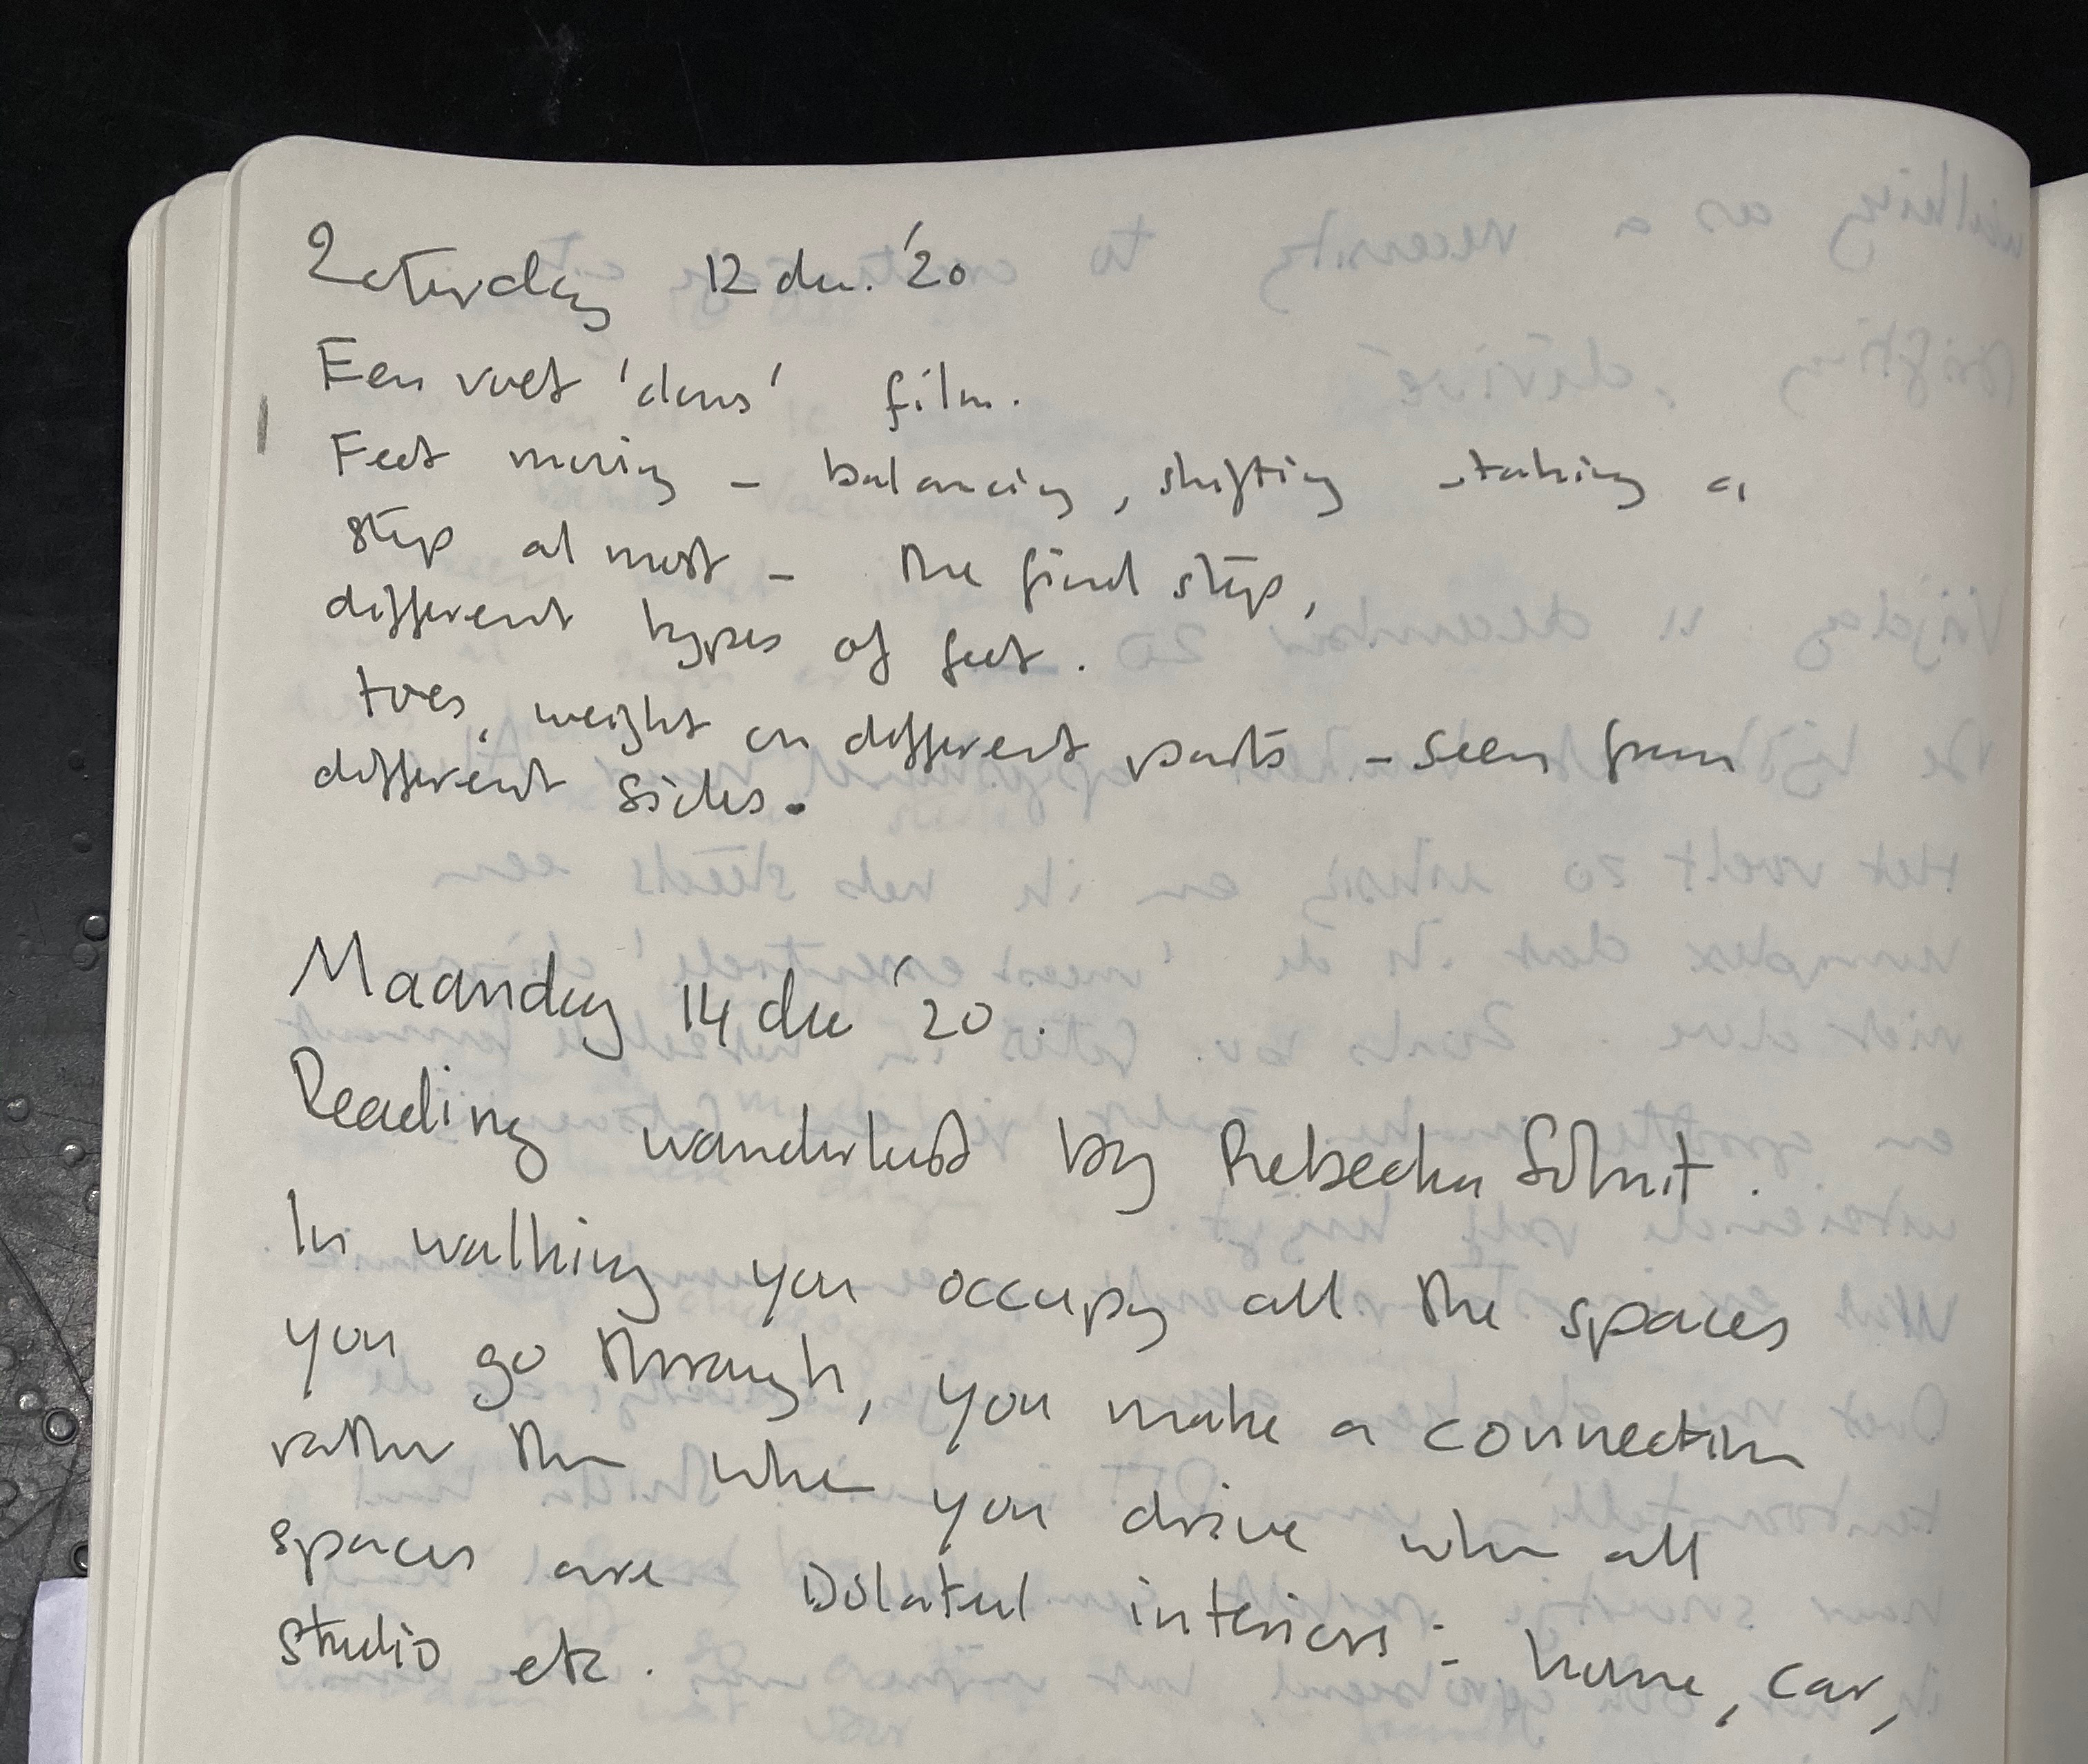 Zaturday 12 dec. '20
Een voet 'dans' film.
Feet moving - balancing, shifting - taking a
step almost - the final step,
different types of feet.
toes, weight on different parts - seen from
different sides.
Maandag 14 dec '20.
Reading wanderlust by Rebecka Solnit.
In walking you occupy all the spaces
you go through, you make a connection
rather then when you drive when all
spaces are isolated interiors: home, car,
studio etc.